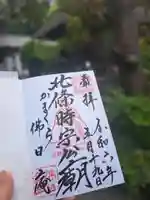 奉拝
令和六年
五月十九日
北條時宗公廟
かまくら
佛日庵